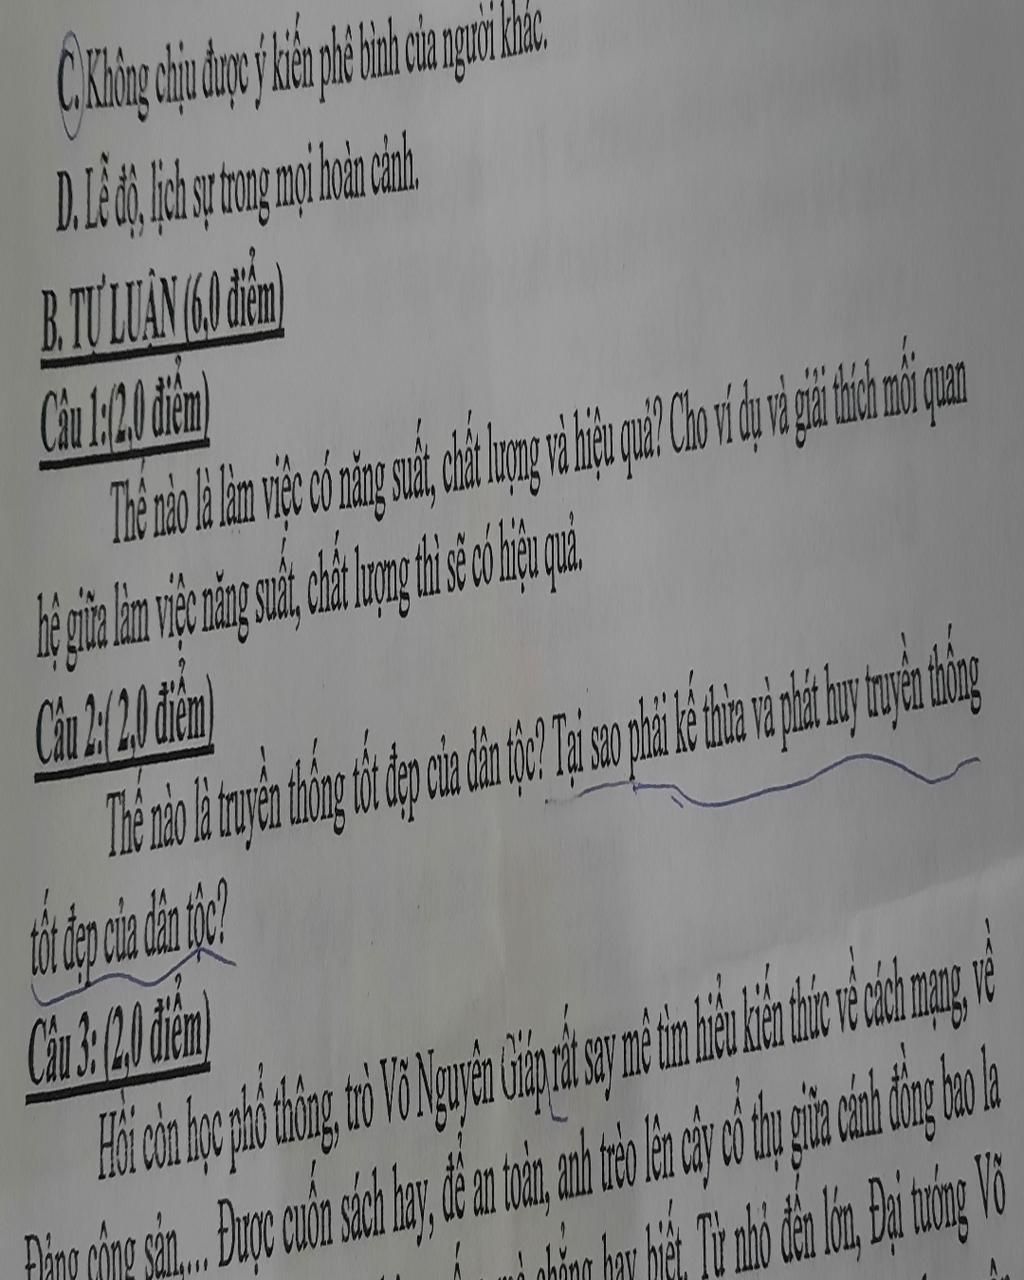 C. Không chịu được ý kiến phê bình của người khác.
D. Lễ độ, lịch sự trong mọi hoàn cảnh.
B. TỰ LUẬN (6,0 điểm)
Câu 1:(2,0 điểm)
Thế nào là làm việc có năng suất, chất lượng và hiệu quả? Cho ví dụ và giải thích mối quan
hệ giữa làm việc năng suất, chất lượng thì sẽ có hiệu quả.
Câu 2:( 2,0 điểm)
Thế nào là truyền thống tốt đẹp của dân tộc? Tại sao phải kế thừa và phát huy truyền thống
tốt đẹp của dân tộc?
Câu 3: (2,0 điểm)
Hồi còn học phổ thông, trò Võ Nguyên Giáp rất say mê tìm hiểu kiến thức về cách mạng, về
Đảng cộng sản,... Được cuốn sách hay, để an toàn, anh trèo lên cây cổ thụ giữa cánh đồng bao la
mà chẳng hay biết. Từ nhỏ đến lớn, Đại tướng Võ